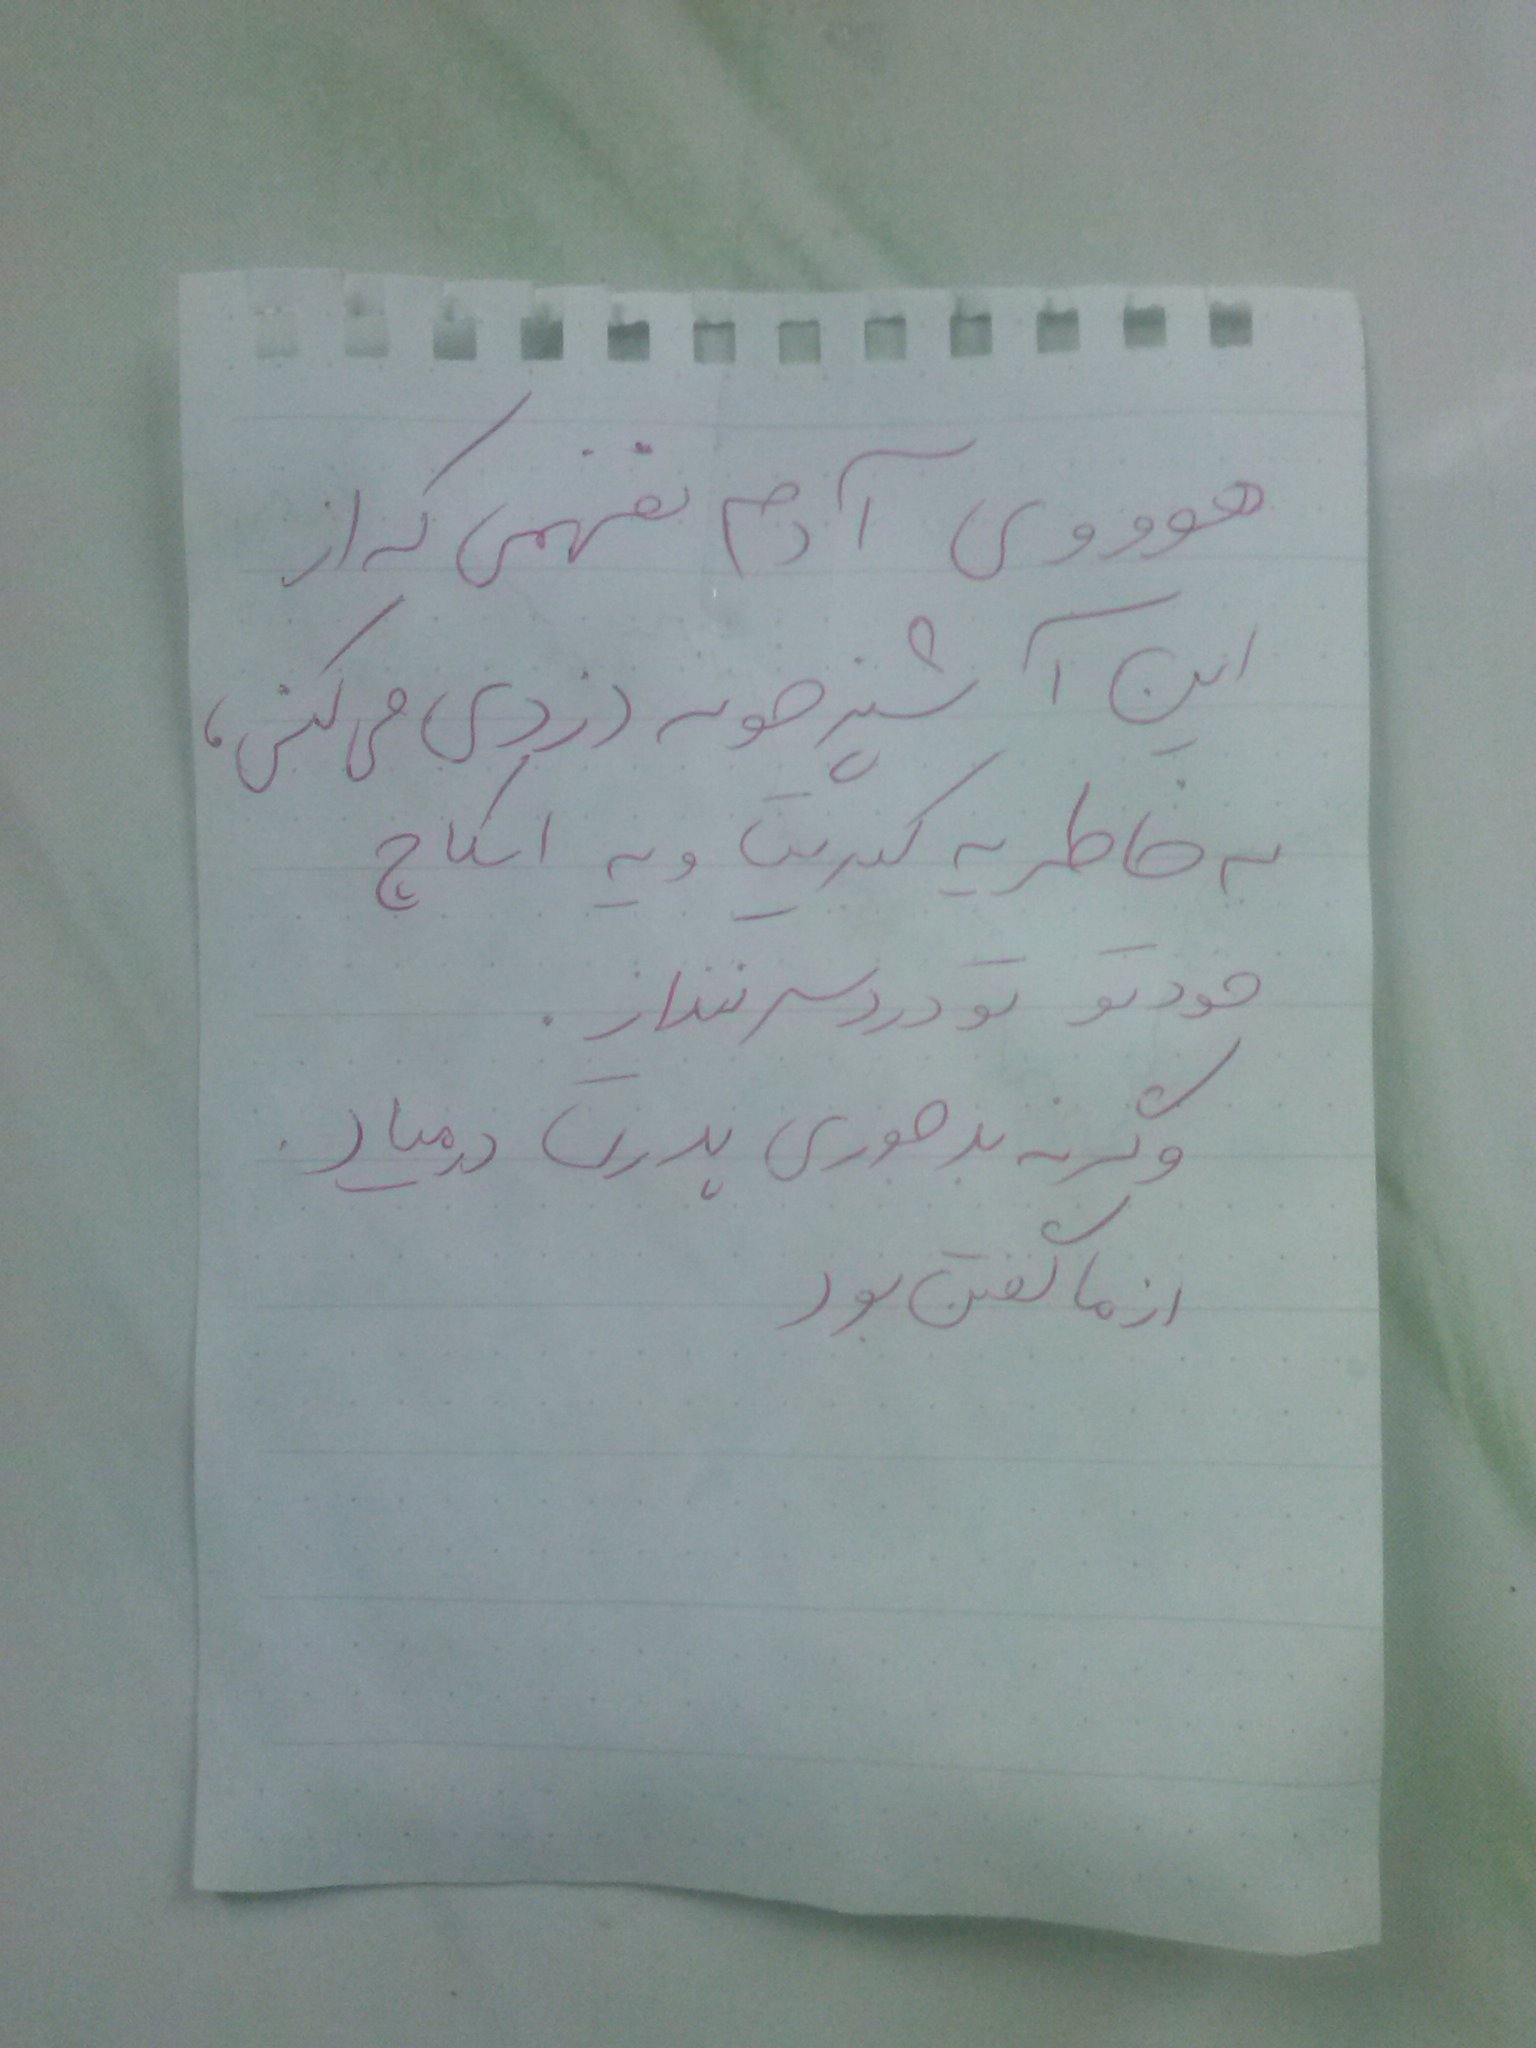 هوووی آدم نفهمی که از
این آشپزخونه دزدی می‌کنی،
به خاطر یه کبریت و یه اسکاچ
خودتو تو دردسر ننداز.
وگرنه بدجوری پدرت درمیاد.
از ما گفتن بود